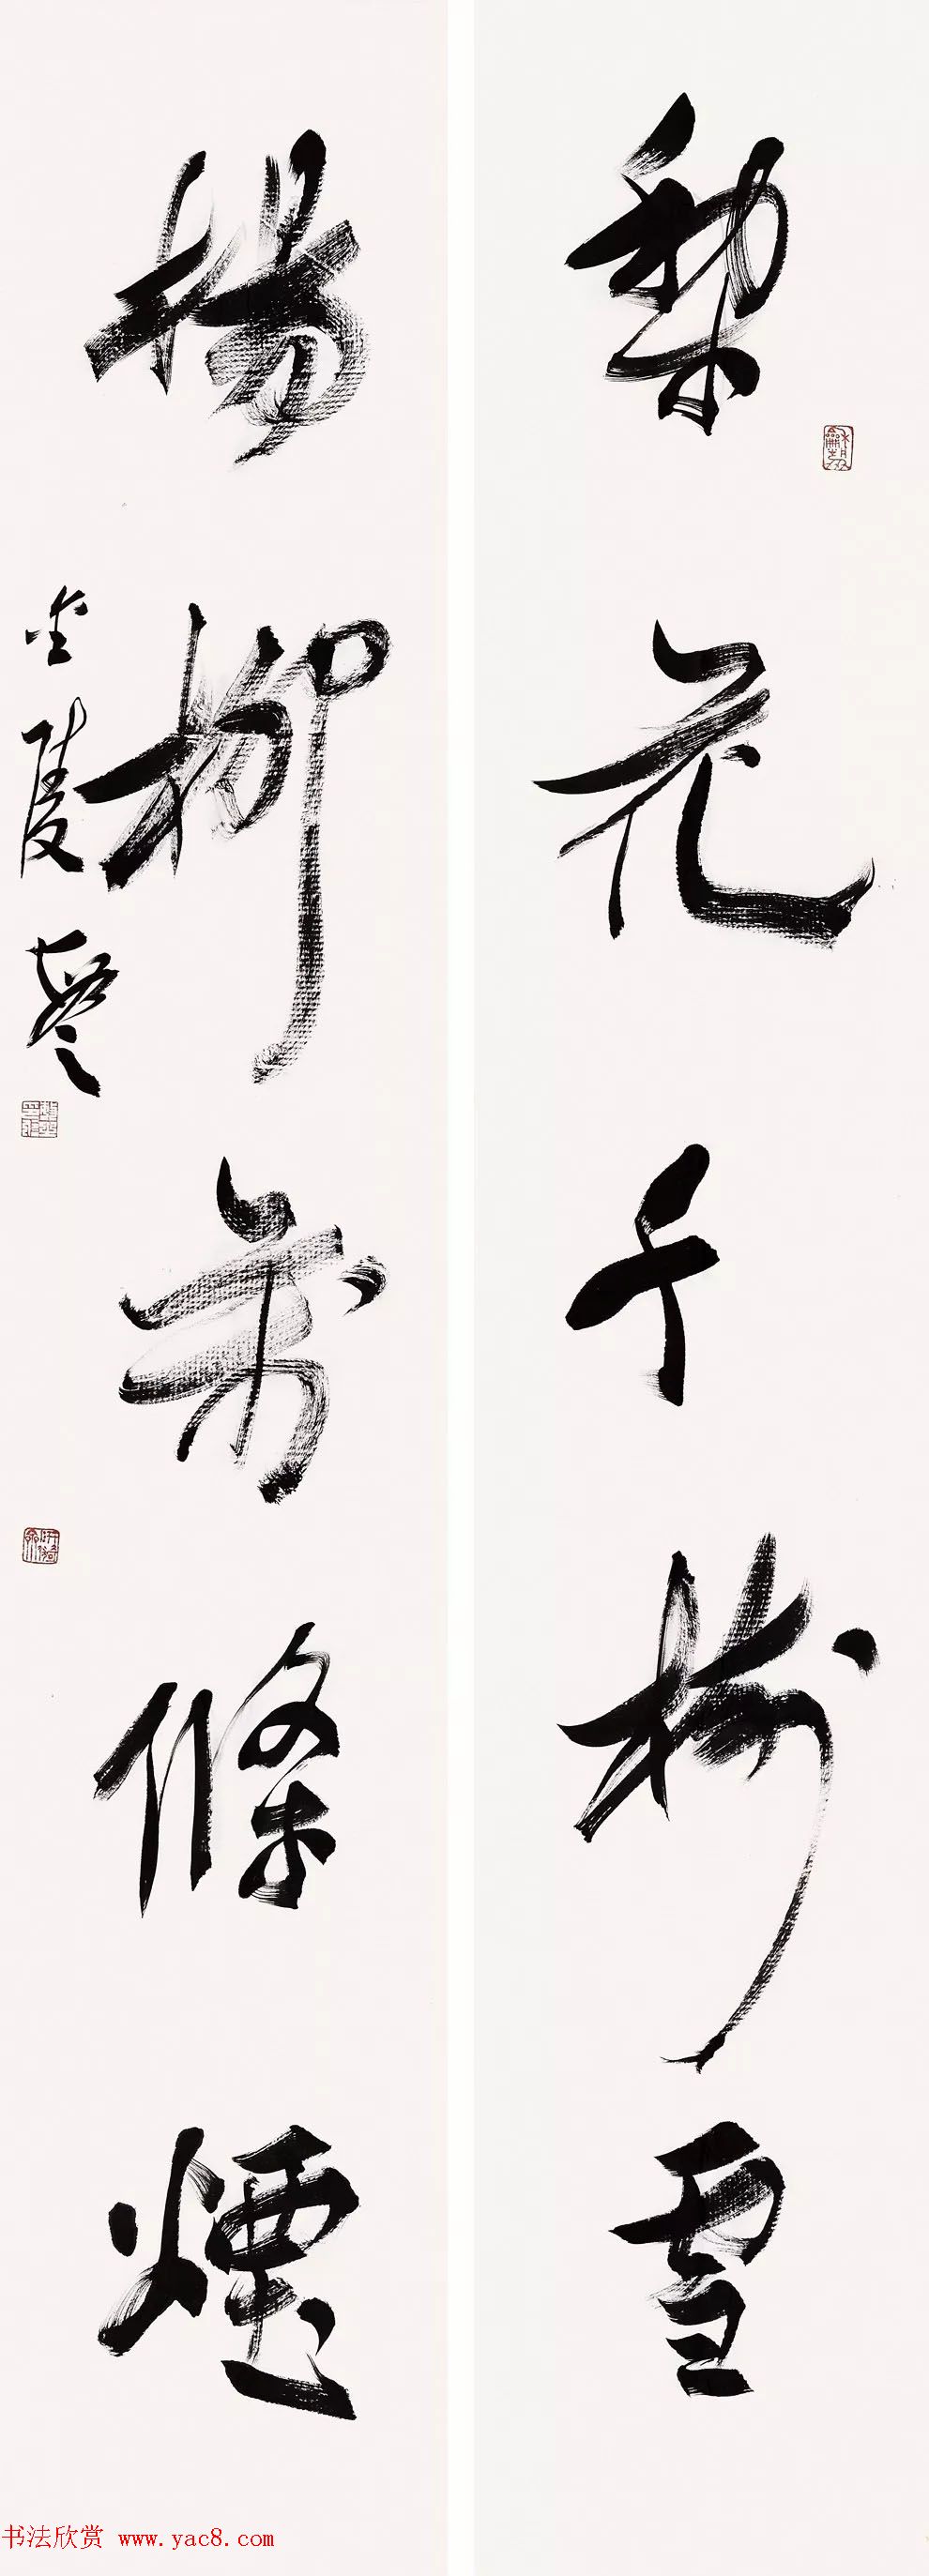 梨花千樹雪
楊柳萬條煙
金陵
书法欣赏 www.yac8.com